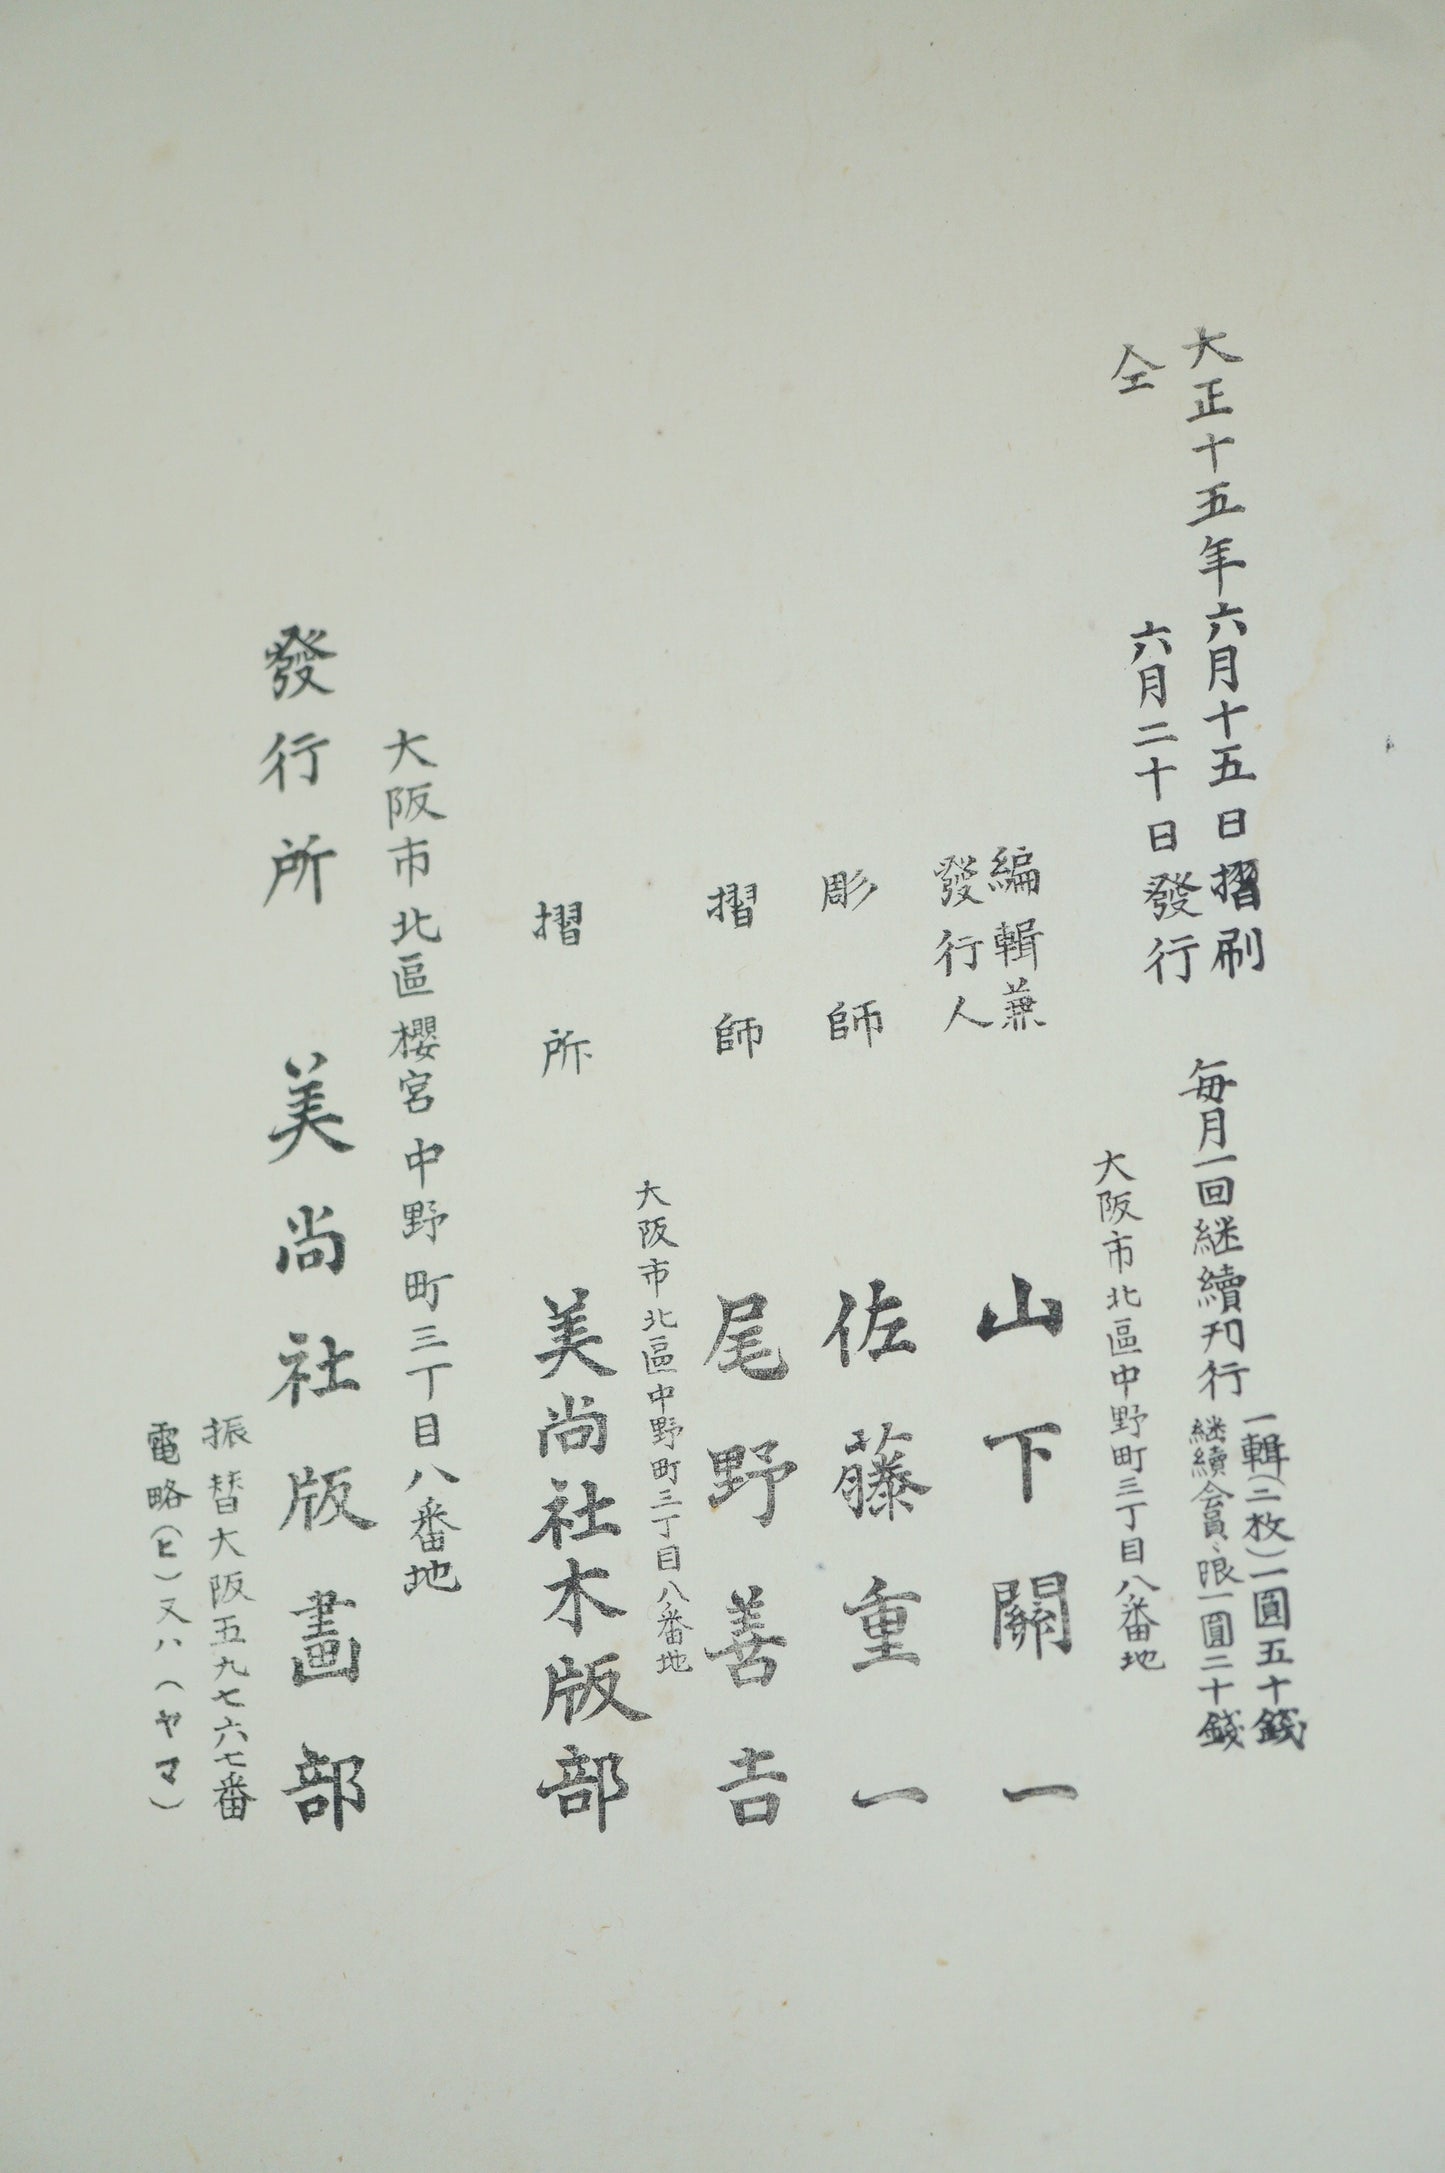 大正十五年六月十五日摺刷
仝　六月二十日發行
毎月一回継續刊行
一輯（二枚）一圓五十錢
継續会員ハ限一圓二十錢
大阪市北區中野町三丁目八番地
編輯兼
發行人
山下關一
彫師　佐藤重一
摺師　尾野善吉
大阪市北區中野町三丁目八番地
摺所　美尚社木版部
大阪市北區櫻宮中野町三丁目八番地
發行所　美尚社版畫部
振替大阪五九七六七番
電略（ヒ）又ハ（ヤマ）